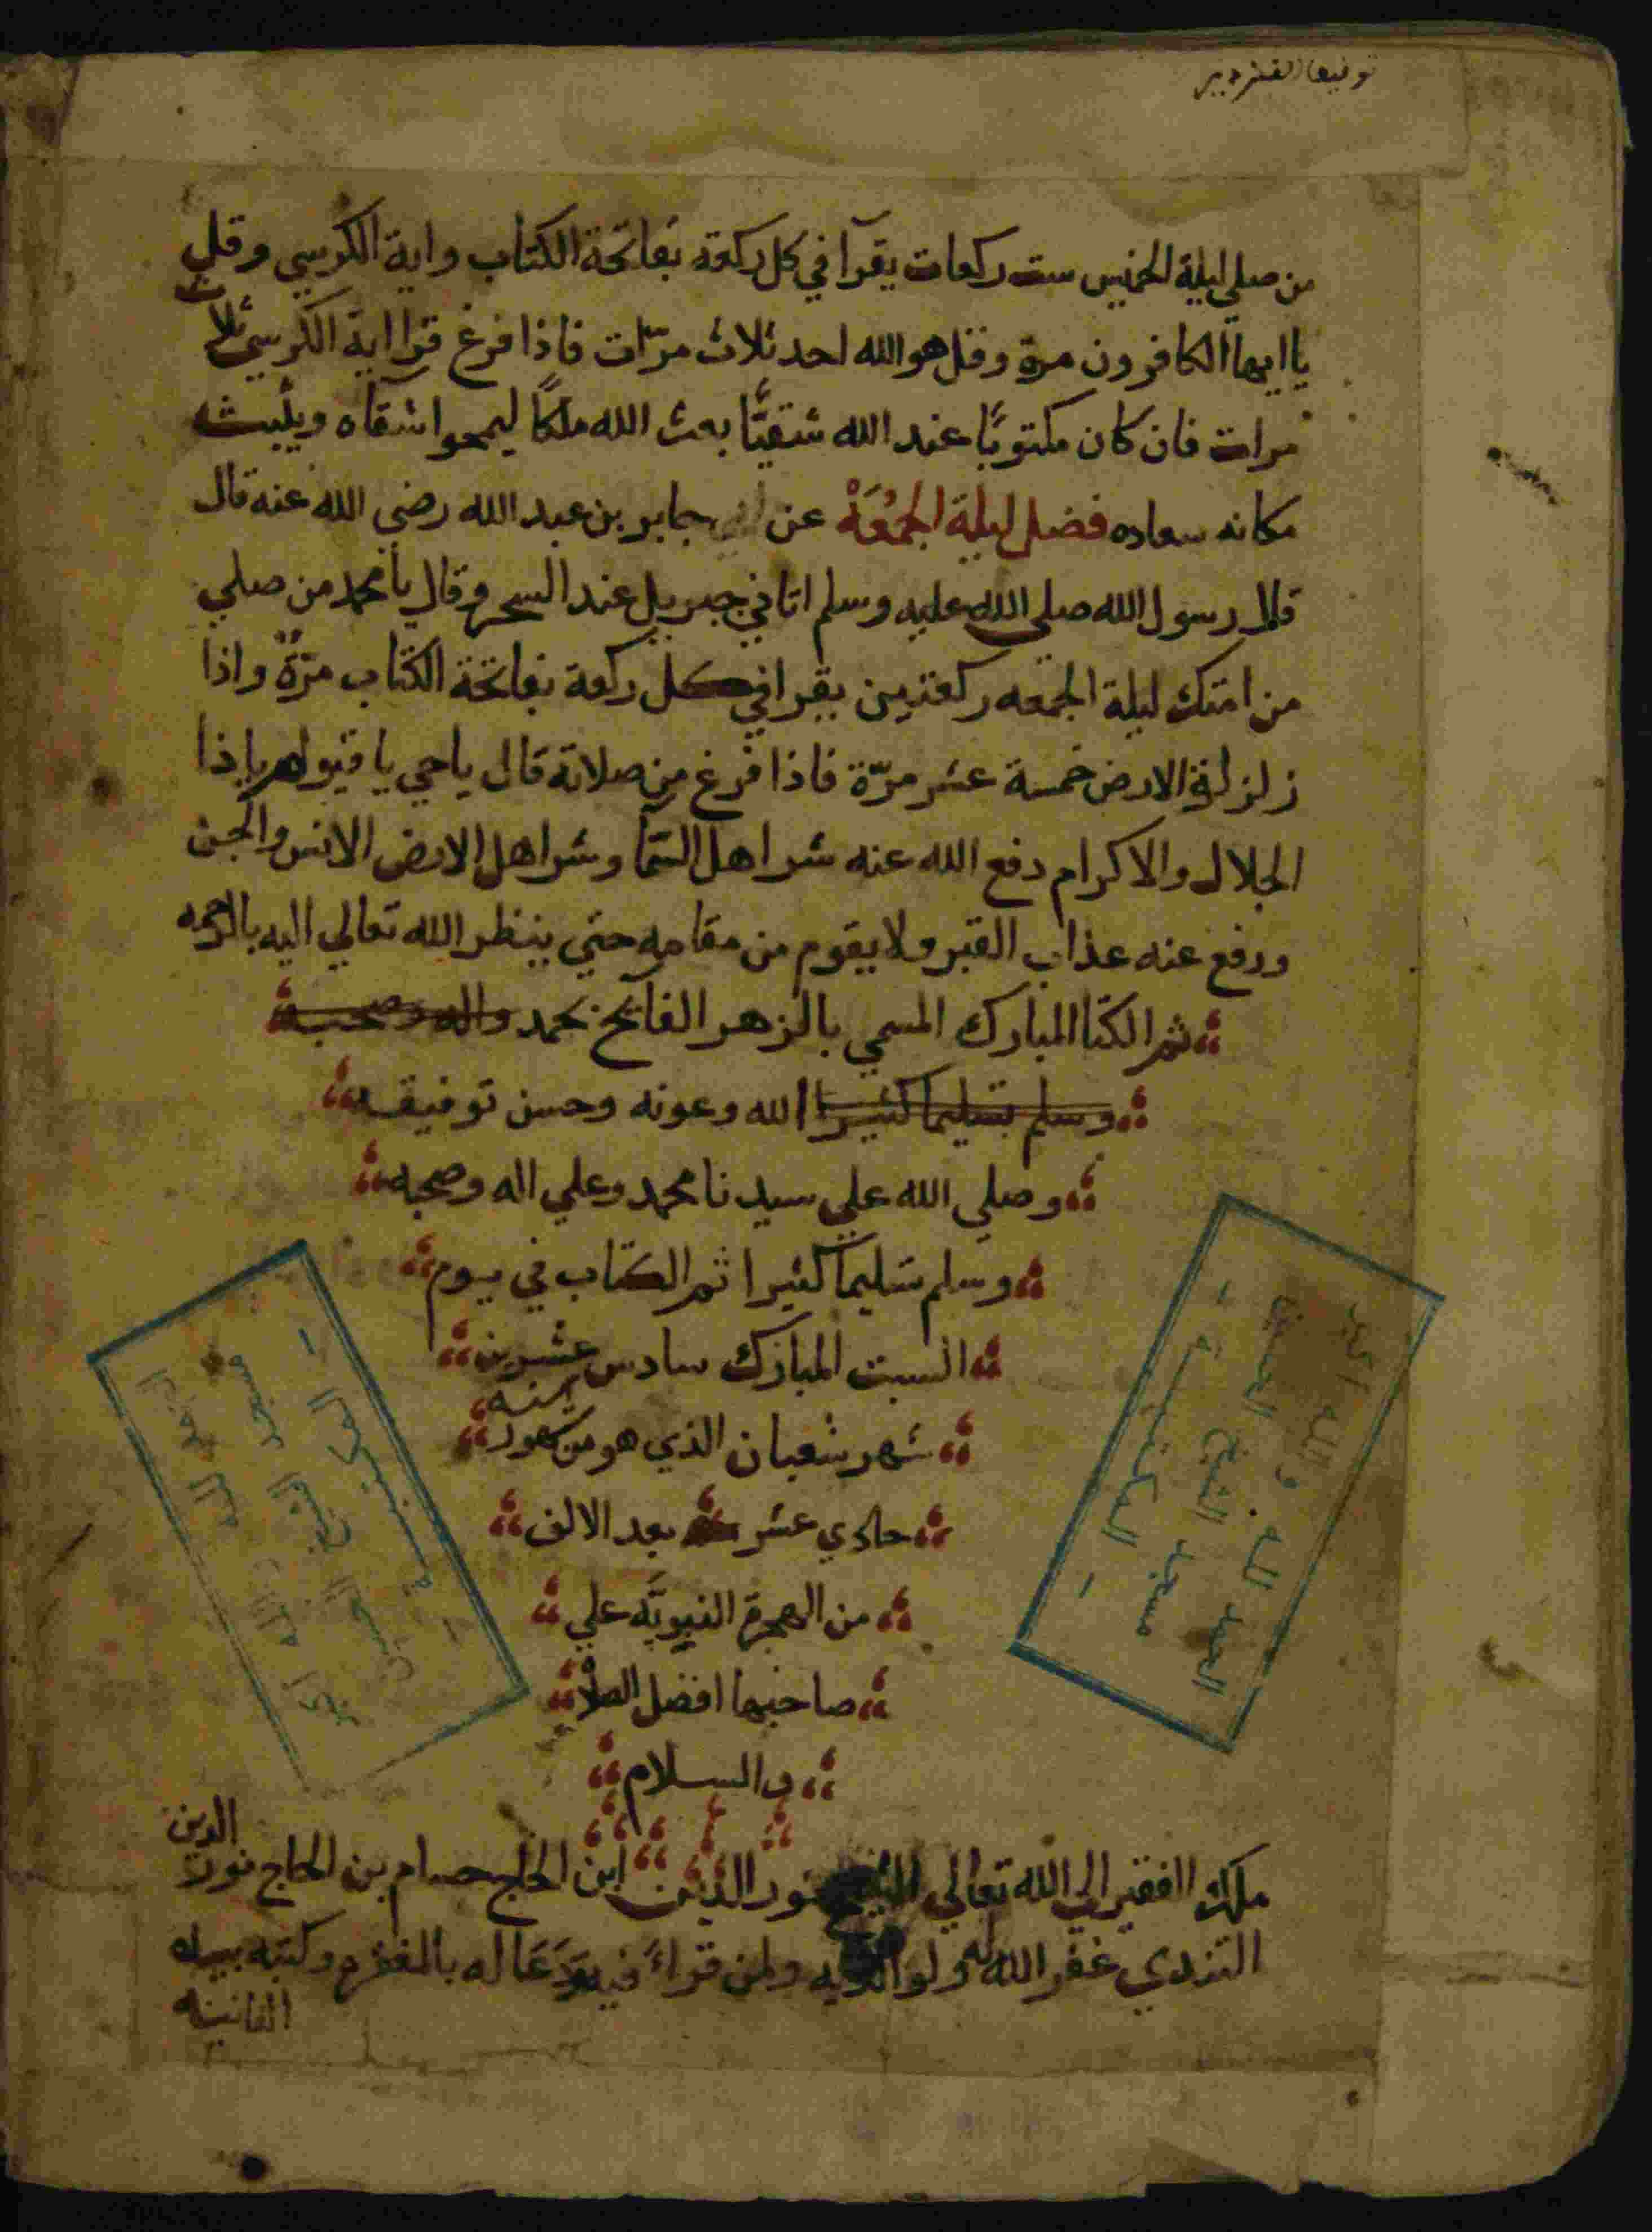 من صلي ليلة الخميس ست ركعات يقرآ في كل ركعة بفاتحة الكتاب واية الكرسي وقل
يا ايها الكافرون مرة وقل هو الله احد ثلاث مرّات فاذا فرغ قرا اية الكرسي ثلاث
مرات فان كان مكتوبًا عند الله شقيًّا بعث الله ملكًا ليمحوا شقاه ويثبت
مكانه سعاده فضل ليلة الجُمُعَةْ عن جابر بن عبد الله رضي الله عنه قال
قال رسول الله صلي الله عليه وسلم اتاني جبريل عند السحر وقال يا محمد من صلي
من امتك ليلة الجمعه ركعتين يقرا في كل ركعة بفاتحة الكتاب مرّةً واذا
زلزلة الارض خمسة عشر مرّة فاذا فرغ من صلاته قال يا حي يا قيوم يا ذا
الجلال والاكرام دفع الله عنه شر اهل السّما وشر اهل الارض الانس والجن
ورفع عنه عذاب القبر ولا يقوم من مقامه حتي ينظر الله تعالي اليه بالرحمه
تم الكتا المبارك المسمي بالزهر الفائح بحمد واله وصحبه
وسلم تسليما كثيرا الله وعونه وحسن توفيقه
وصلي الله علي سيدنا محمد وعلي اله وصحبه
وسلم تسليما كثيرا تم الكتاب في يوم
السبت المبارك سادس عشرين
شهر شعبان الذي هو من شهور سنه
حادي عشر بعد الالف
من الهجرة النبويَّه علي
صاحبها افضل الصلاة
والسلام
ملك الفقير الي الله تعالي نور الدين ابن الحاج حسام بن الحاج نور الدين
غفر الله له ولوالديه ولمن قراء فيه ودَعَا له بالمغفره وكتبه بيده
الفانيه
الحمد لله والله اكبر
مسجد الشيخ الحسين
- المكتبة -
الحمد لله والله اكبر
مسجد الشيخ الحسين
- المكتبة -